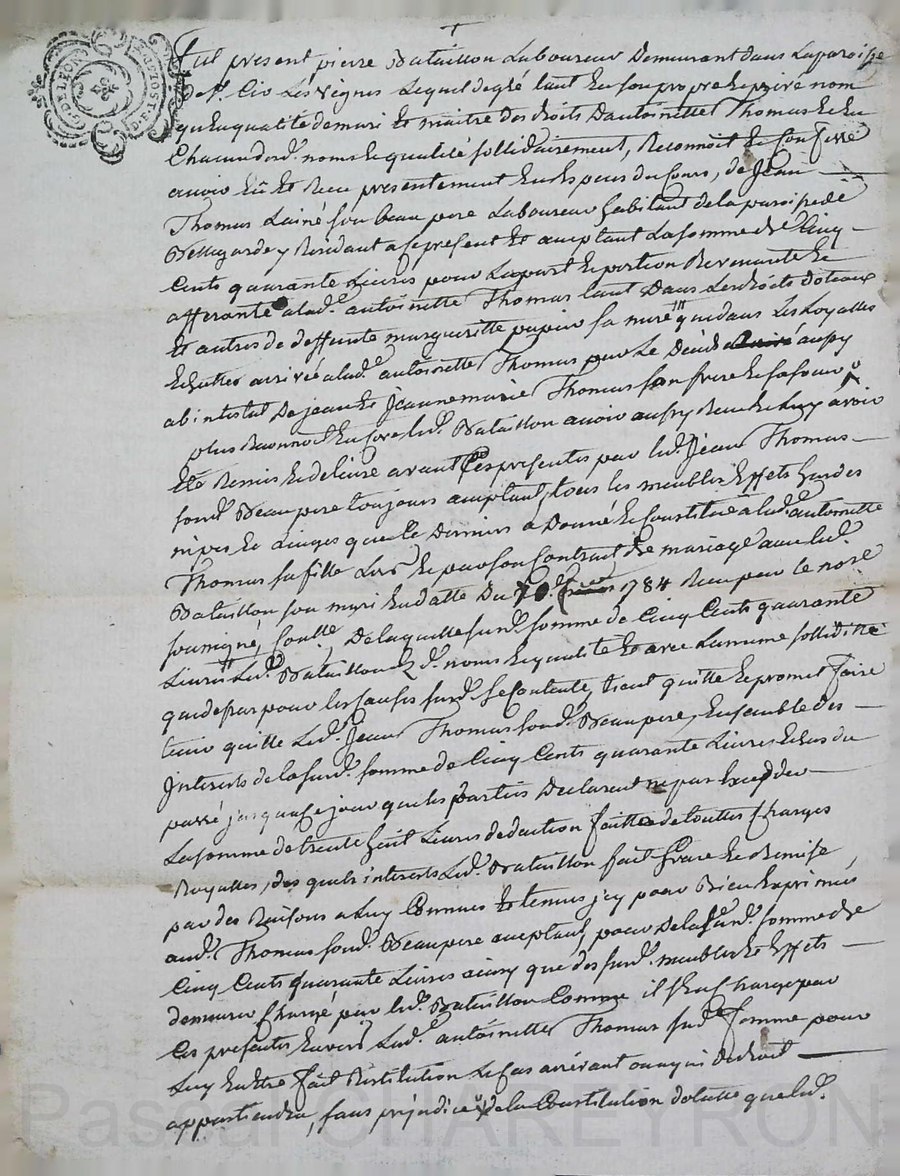 Fut present pierre Bataillon Laboureur Demeurant dans La paroisse
de St. Cir Les vignes Lequel de gré tant En son propre Et privé nom
qu'En qualité de mari Et maitre des droits D'antoinette Thomas Et En
Chacun desd. noms Et qualité sollidairement, Reconnoit Et Confesse
avoir Eû Et Reçu presentement En Especes du Cours, de Jean
Thomas Lainé son beau pere Laboureur habitant de la paroisse de
Bellegarde y Residant a ce present Et acceptant La somme de Cinq
Cents quarante Livres pour La part Et portion Revenante Et
afferante a lad. antoinette Thomas tant Dans Les droits dotaux
Et autres de deffunte margueritte papier sa mere que dans Les Loyalles
Echuttes arrivée a lad. antoinette Thomas par Le Déces aussy
abintestat De jean Et Jeanne marie Thomas son frere Et sa soeur
plus Reconnoit Encore led. Bataillon avoir aussy Reçu Et Luy avoir
Eté Remis Et delivré avant Ces presentes par led. Jean Thomas
sond. Beau pere toujours acceptant, tous les meubles Effets hardes
nipes Et Linges que Ce Dernier a Donné Et Constitué a lad. antoinette
Thomas sa fille Lors Et par son Contract de mariage avec led.
Bataillon son mari En datte Du 1784 Reçu par le nore
soussigné, De laquelle susd. somme de Cinq Cents quarante
Livres Led. Bataillon Ez d. noms Et qualité Et avec La meme sollidité
que dessus pour les Causes susd. se Contente, tient quitte Et promet faire
tenir quitte Led. Jean Thomas sond. Beau pere, Ensemble des
Interests de la susd. somme de Cinq Cents quarante Livres Echus du
passé jusqu'a Ce jour que les parties Declarent ne pas Exceder
La somme de trente huit Livres deduction faitte de touttes Charges
Royalles, des quels interests Led. Bataillon fait Grace Et Remise
par des Raisons a Luy Connues Et tenues jcy pour Bien Exprimées
aud. Thomas sond. Beau pere acceptant, pour De la susd. somme de
Cinq Cents quarante Livres ainsy que des susd. meubles Et Effets
demeurer Chargé par led. Bataillon Comme il s'En Charge par
Ces presentes Envers Lad. antoinette Thomas sad. femme pour
Luy En Etre fait Restitution Le Cas arrivant ou a qui de droit
appartiendra, sans prejudice de la Constitution dotalle que led.
Pascal CHAREYRON